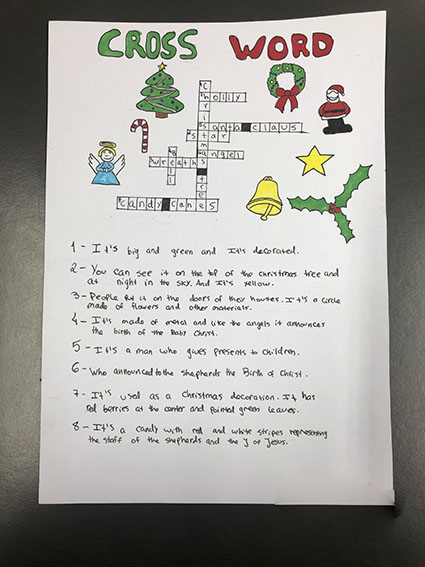 CROSS WORD
Christmas tree
holly
santa claus
star
angel
wreath
bell
candy canes
1 - It's big and green and It's decorated.
2 - You can see it on the top of the christmas tree and
at night in the sky. And It's yellow.
3 - People put it on the doors of their houses. It's a circle
made of flowers and other materials.
4 - It's made of metal and like the angels it announces
the birth of the Baby Christ.
5 - It's a man who gives presents to children.
6 - Who announced to the shepherds the Birth of Christ.
7 - It's used as a Christmas decoration. It has
red berries at the center and pointed green leaves.
8 - It's a candy with red and white stripes representing
the staff of the shepherds and the J of Jesus.